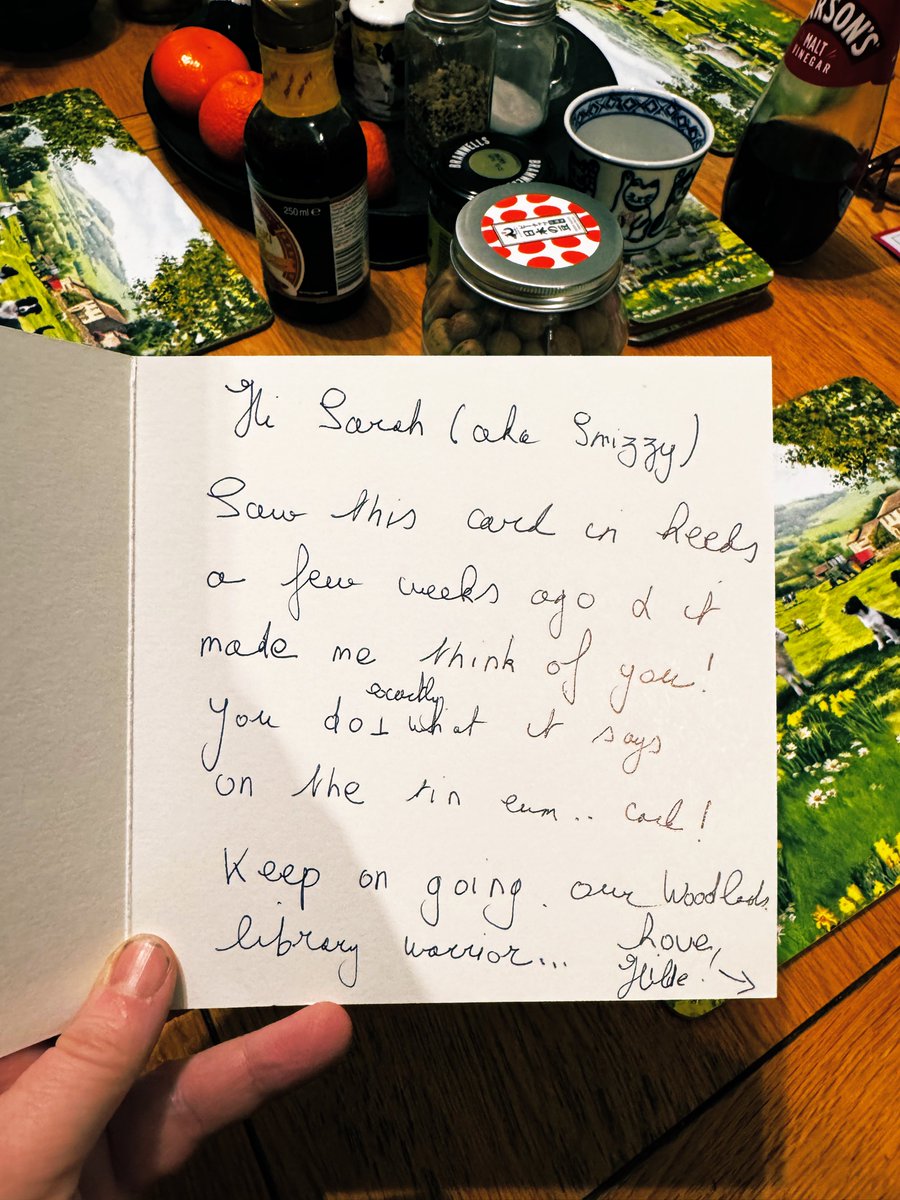 ARSON'S
MALT
VINEGAR
250 ml e
Hi Sarah (aka Smizzy)
Saw this card in Leeds
a few weeks ago & it
made me think of you!
You do exactly what it says
on the tin eum.. card!
Keep on going. our
library warrior... Love,
Hilde. →